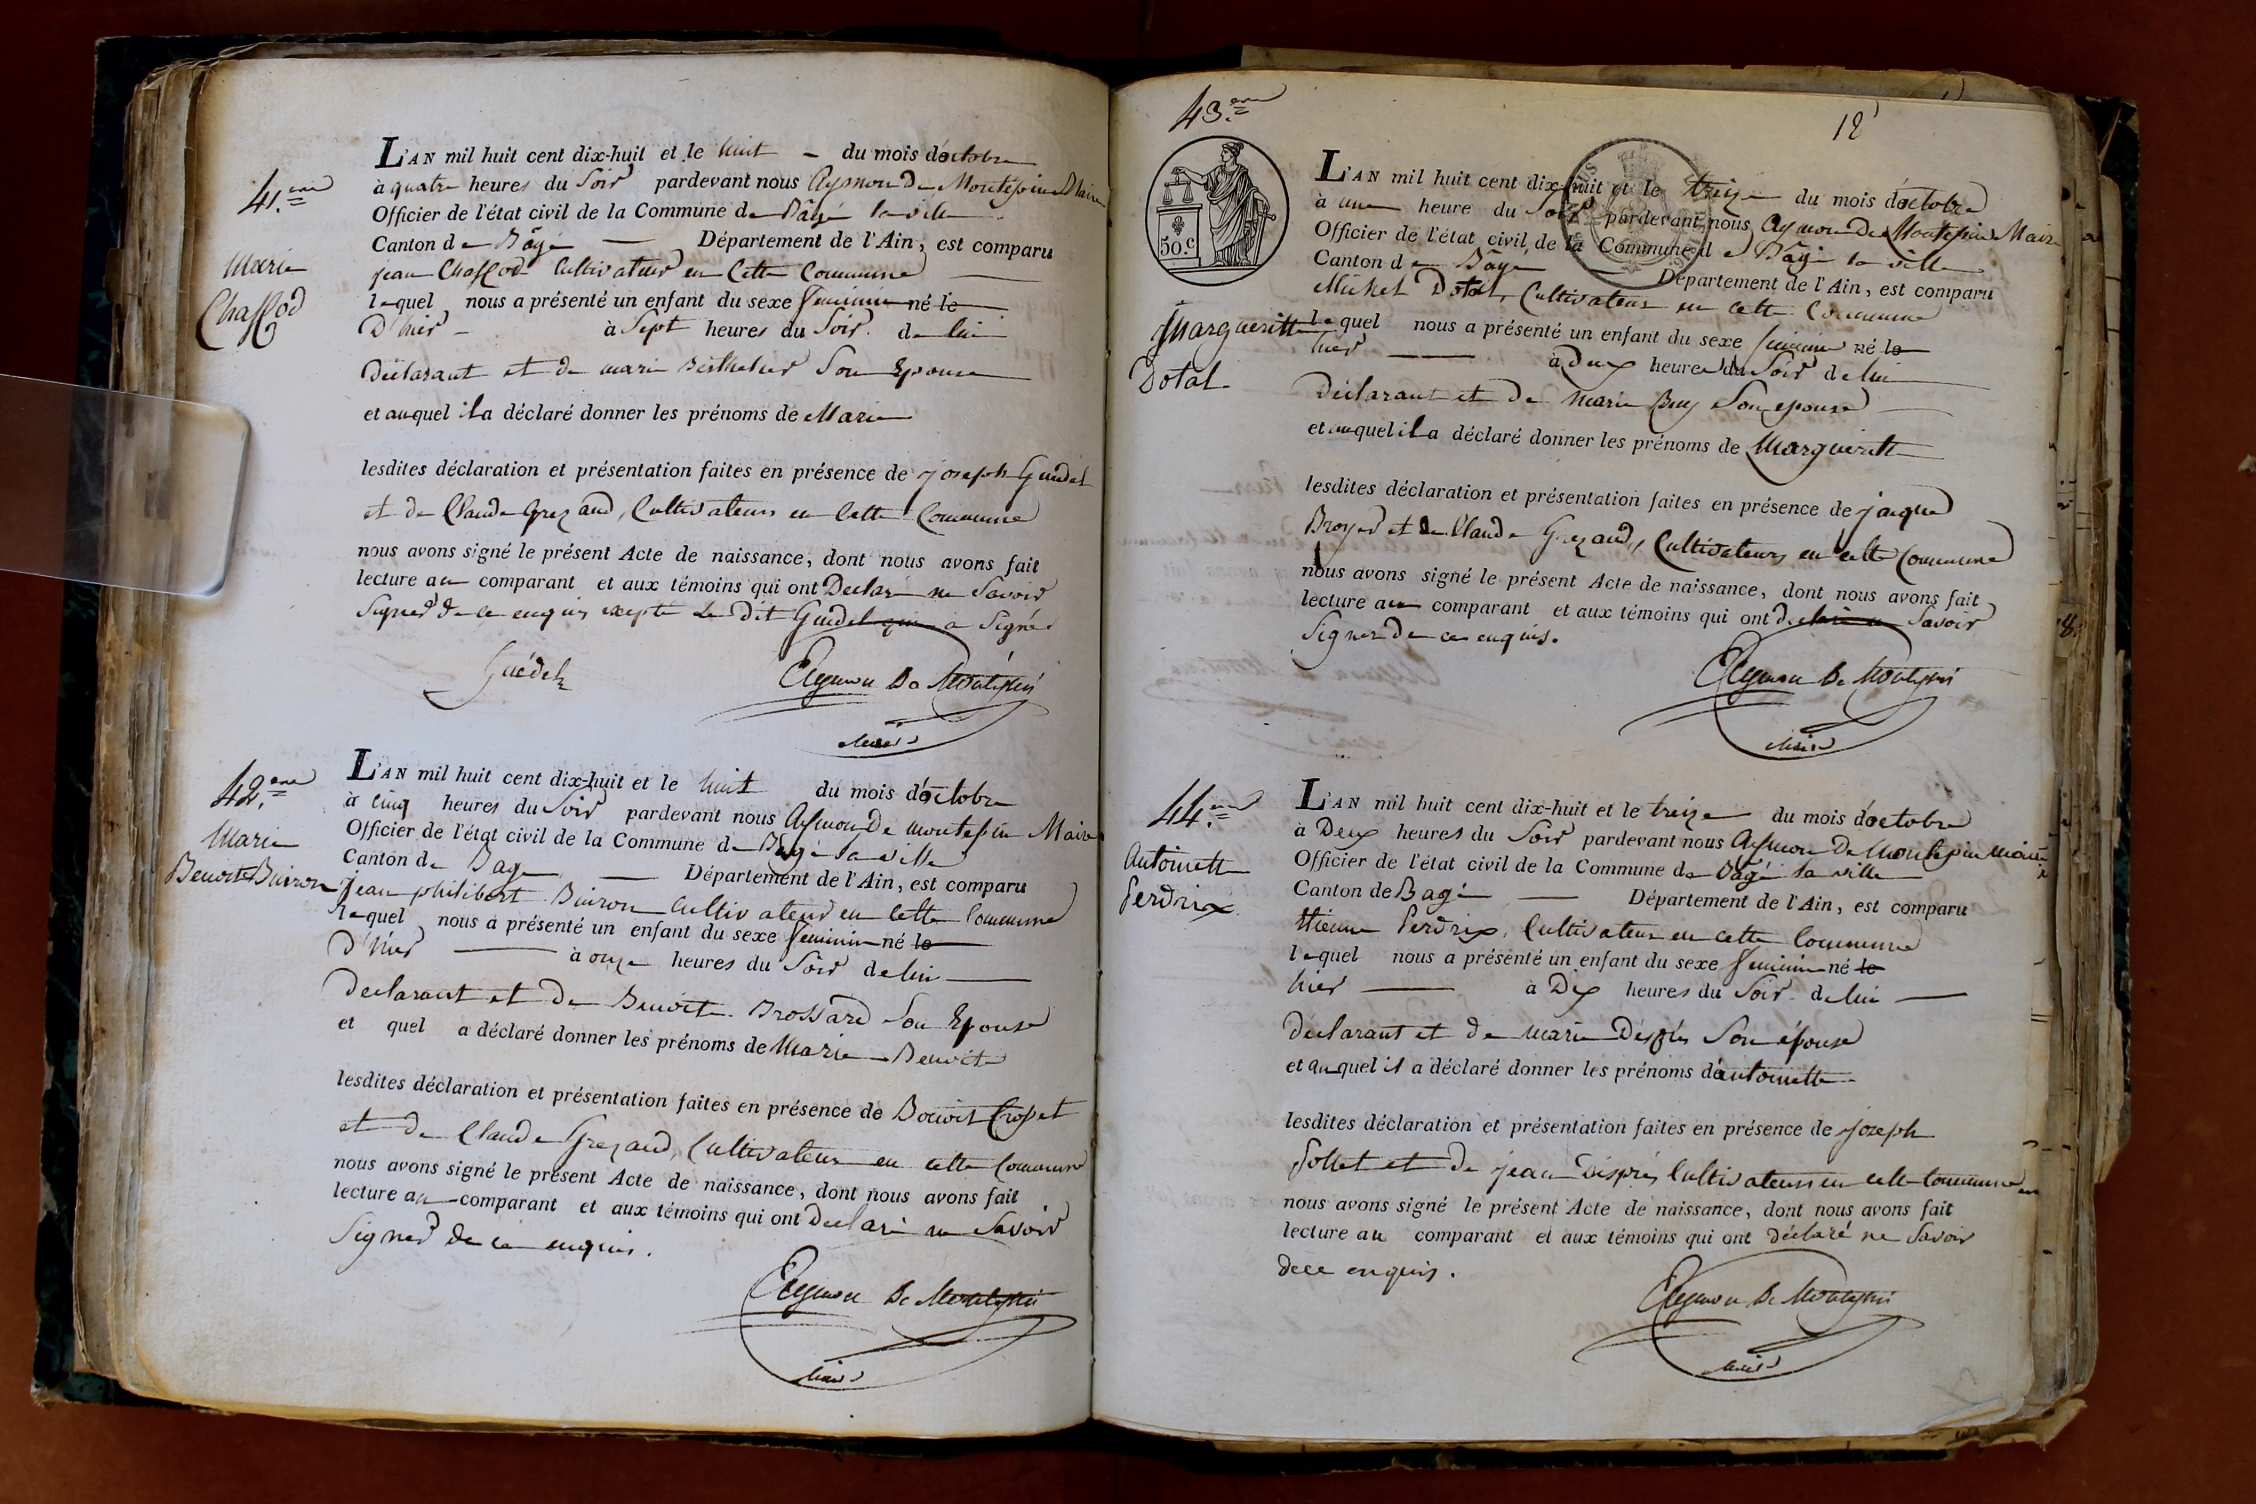 41.eme
Marie
Chaffod
L'AN mil huit cent dix-huit et le huit - du mois d'octobre
à quatre heures du Soir pardevant nous Aymon De Montépin Maire
Officier de l'état civil de la Commune de Bâgé la ville
Canton de Bâgé — Département de l'Ain, est comparu
jean Chaffod Cultivateur en Cette Commune
lequel nous a présenté un enfant du sexe feminin né le
D'hier - à Sept heures du Soir de lui
Déclarant et de marie Berthelier Son Epouse
et auquel il a déclaré donner les prénoms de Marie
lesdites déclaration et présentation faites en présence de joseph Guédel
et de Claude Grezaud, Cultivateurs en Cette Commune
nous avons signé le présent Acte de naissance, dont nous avons fait
lecture au comparant et aux témoins qui ont Declaré ne Savoir
Signer de ce enquis excepté Le Dit Guédel qui a Signé
Guédel
Aymon De Montépin
Maire
42.eme
Marie
Benoite Buiron
L'AN mil huit cent dix-huit et le huit du mois d'octobre
à cinq heures du Soir pardevant nous Aymon De montepin Maire
Officier de l'état civil de la Commune de Bâgé la ville
Canton de Bagé — Département de l'Ain, est comparu
jean philibert Buiron Cultivateur en Cette Commune
lequel nous a présenté un enfant du sexe feminin né le
D'hier — à onze heures du Soir de lui —
Declarant et de Benoite Brossard Son Epouse
et quel a déclaré donner les prénoms de Marie Benoite
lesdites déclaration et présentation faites en présence de Benoit Croset
et de Claude Grezaud, Cultivateurs en cette Commune
nous avons signé le présent Acte de naissance, dont nous avons fait
lecture au comparant et aux témoins qui ont Declaré ne Savoir
Signer de ce enquis.
Aymon De Montépin
Maire
43.eme
12
50.c
Margueritte
Dotal
L'AN mil huit cent dix-huit et le treize du mois d'octobre
à une heure du Soir pardevant nous Aymon De Montépin Maire
Officier de l'état civil de la Commune de Bâgé la ville
Canton de Bâgé — Département de l'Ain, est comparu
Michel Dotal, Cultivateur en cette Commune
lequel nous a présenté un enfant du sexe feminin né le
hier — à Deux heures du Soir de lui
Déclarant et De Marie Buy Son epouse
et auquel il a déclaré donner les prénoms de Margueritte
lesdites déclaration et présentation faites en présence de jacque
Broyer et de Claude Grezaud, Cultivateurs en cette Commune
nous avons signé le présent Acte de naissance, dont nous avons fait
lecture au comparant et aux témoins qui ont declaré ne Savoir
Signer De ce enquis.
Aymon De Montépin
Maire
44.eme
Antoinette
Perdrix
L'AN mil huit cent dix-huit et le treize du mois d'octobre
à Deux heures du Soir pardevant nous Aymon De Montepin Maire
Officier de l'état civil de la Commune de Bâgé la ville
Canton de Bagé — Département de l'Ain, est comparu
Etienne Perdrix, Cultivateur en cette Commune
lequel nous a présenté un enfant du sexe feminin né le
hier — à Dix heures du Soir de lui —
déclarant et de marie Desprès Son épouse
et auquel il a déclaré donner les prénoms d'antoinette
lesdites déclaration et présentation faites en présence de joseph
Pollet et de jean Desprès Cultivateurs en cette Commune
nous avons signé le présent Acte de naissance, dont nous avons fait
lecture au comparant et aux témoins qui ont déclaré ne Savoir
dece enquis.
Aymon De Montépin
Maire